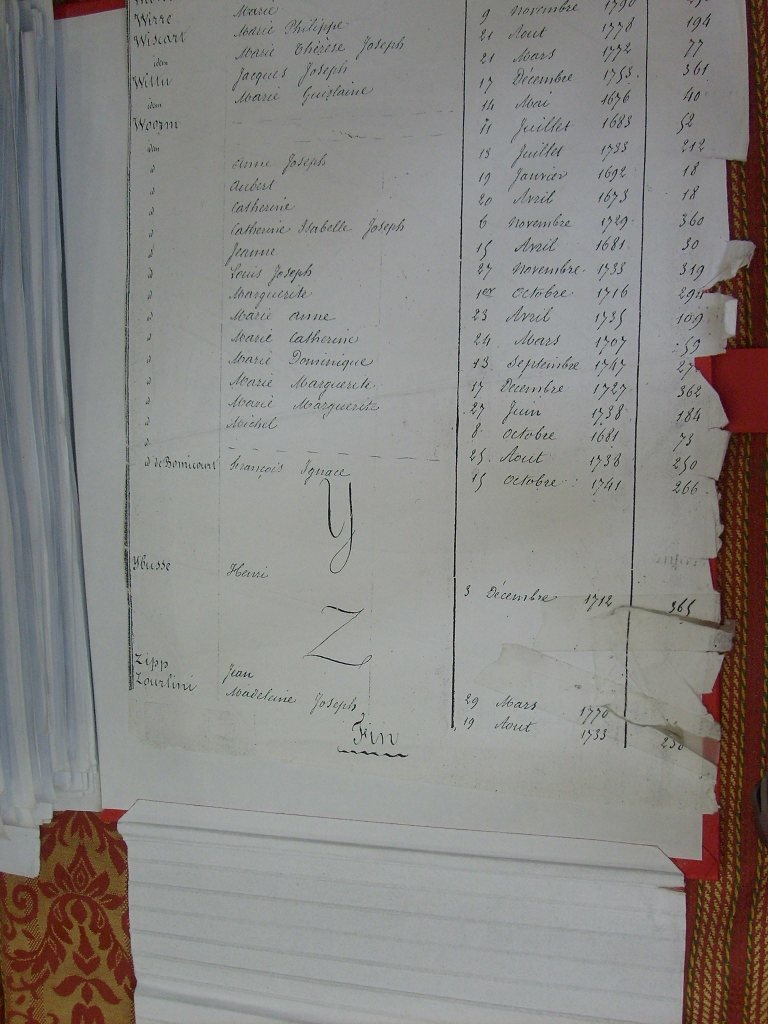 Wirre Marie
Wiscart Marie Philippe 9 novembre 1790
idem Marie Thérèse Joseph 21 Aout 1778 194
Wittu Jacques Joseph 21 Mars 1772 77
idem Marie Guislaine 17 Décembre 1753 361
14 Mai 1676 40
idm 11 Juillet 1683 52
d Anne Joseph 13 Juillet 1733 212
d Aubert 19 Janvier 1692 18
d Catherine 20 Avril 1673 18
d Catherine Isabelle Joseph 6 novembre 1729 360
d Jeanne 15 Avril 1681 30
d Louis Joseph 27 novembre 1733 319
d Marguerite 1er Octobre 1716 294
d Marie Anne 23 Avril 1735 109
d Marie Catherine 24 Mars 1707 59
d Marie Dominique 13 Septembre 1747
d Marie Marguerite 17 Decembre 1727 362
d Marie Marguerite 27 Juin 1738 184
d Michel 8 Octobre 1681 73
d 25 Aout 1738 250
d de Bomicourt François Ignace 15 Octobre 1741 266
Y
Ybusse Henri 3 Décembre 1712 365
Z
Zipp Jean 29 Mars 1770
Zourlini Madeleine Joseph 19 Aout 1733 230
Fin